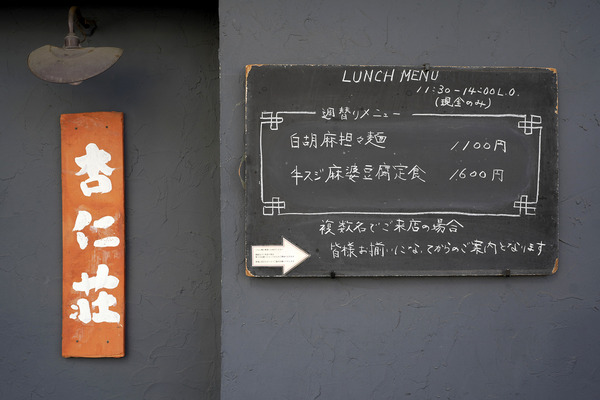 杏仁荘
LUNCH MENU
11:30-14:00 L.O.
(現金のみ)
週替りメニュー
白胡麻担々麺 1100円
牛スジ麻婆豆腐定食 1600円
複数名でご来店の場合
皆様お揃いになってからのご案内となります